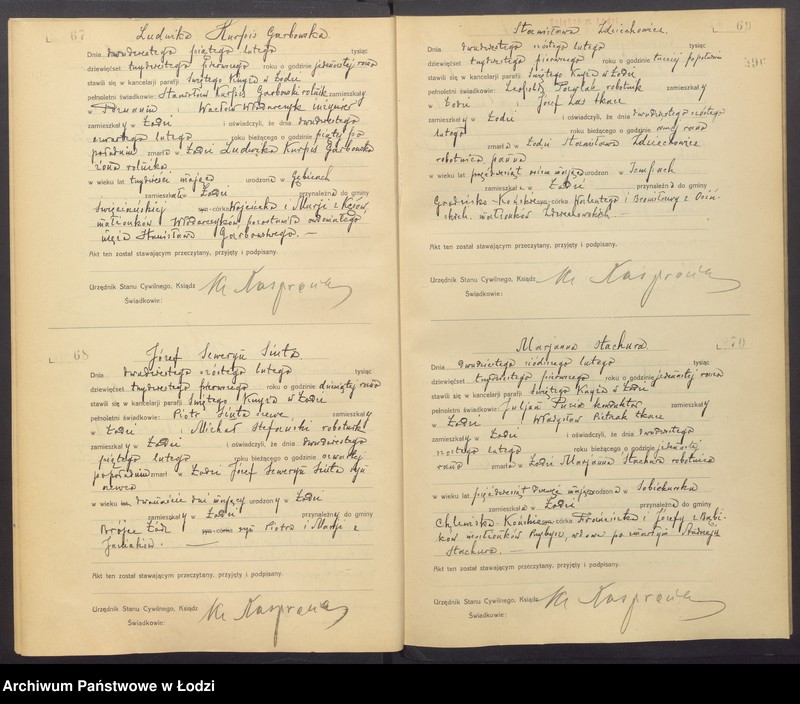 67
Ludwika Kurpis Garbowska
Dnia dwudziestego piątego lutego tysiąc
dziewięćset trzydziestego pierwszego roku o godzinie jedenastej rano
stawili się w kancelarji parafji Świętego Krzyża w Łodzi
pełnoletni świadkowie: Stanisław Kurpis Garbowski rolnik zamieszkały
w Poznaniu i Wacław Włodarczyk
zamieszkały w Łodzi i oświadczyli, że dnia dwudziestego
czwartego lutego roku bieżącego o godzinie piątej po
południu zmarła w Łodzi Ludwika Kurpis Garbowska
żona rolnika
w wieku lat trzydzieści mająca urodzona w Gębicach
zamieszkała w Łodzi przynależna do gminy
córka Wojciecha i Marji z
małżonków Włodarczyków pozostawiła owdowiałego
męża Stanisława Garbowskiego. —
Akt ten został stawającym przeczytany, przyjęty i podpisany.
Urzędnik Stanu Cywilnego, Ksiądz
Świadkowie:
68
Józef Seweryn Siuta
Dnia dwudziestego szóstego lutego tysiąc
dziewięćset trzydziestego pierwszego roku o godzinie dziesiątej rano
stawili się w kancelarji parafji Świętego Krzyża w Łodzi
pełnoletni świadkowie: Piotr Siuta szewc zamieszkały
w Łodzi i Michał Stefański robotnik
zamieszkały w Łodzi i oświadczyli, że dnia dwudziestego
piątego lutego roku bieżącego o godzinie czwartej
popołudniu zmarł w Łodzi Józef Seweryn Siuta syn
szewca
w wieku dwanaście dni mający urodzony w Łodzi
zamieszkały w Łodzi przynależny do gminy
Brójce Łódź syn Piotra i Marji z
Janiaków. —
Akt ten został stawającym przeczytany, przyjęty i podpisany.
Urzędnik Stanu Cywilnego, Ksiądz
Świadkowie:
69
Stanisława Zdziechowicz
Dnia dwudziestego szóstego lutego tysiąc
dziewięćset trzydziestego pierwszego roku o godzinie trzeciej popołudniu
stawili się w kancelarji parafji Świętego Krzyża w Łodzi
pełnoletni świadkowie: Leopold robotnik zamieszkały
w Łodzi i Józef Las tkacz
zamieszkały w Łodzi i oświadczyli, że dnia dwudziestego szóstego
lutego roku bieżącego o godzinie ósmej rano
zmarła w Łodzi Stanisława Zdziechowicz
robotnica, panna
w wieku lat pięćdziesiąt osiem mająca urodzona w
zamieszkała w Łodzi przynależna do gminy
córka Walentego i Bronisławy z
małżonków Zdziechowskich —
Akt ten został stawającym przeczytany, przyjęty i podpisany.
Urzędnik Stanu Cywilnego, Ksiądz
Świadkowie:
70
Marjanna Stachura
Dnia dwudziestego siódmego lutego tysiąc
dziewięćset trzydziestego pierwszego roku o godzinie jedenastej rano
stawili się w kancelarji parafji Świętego Krzyża w Łodzi
pełnoletni świadkowie: Juljan konduktor zamieszkały
w Łodzi i Władysław Pietrak tkacz
zamieszkały w Łodzi i oświadczyli, że dnia dwudziestego
szóstego lutego roku bieżącego o godzinie jedenastej
rano zmarła w Łodzi Marjanna Stachura robotnica
w wieku lat pięćdziesiąt mająca urodzona w
zamieszkała w Łodzi przynależna do gminy
córka Franciszka i Józefy z
małżonków wdowa po zmarłym Andrzeju
Stachura. —
Akt ten został stawającym przeczytany, przyjęty i podpisany.
Urzędnik Stanu Cywilnego, Ksiądz
Świadkowie:
Archiwum Państwowe w Łodzi